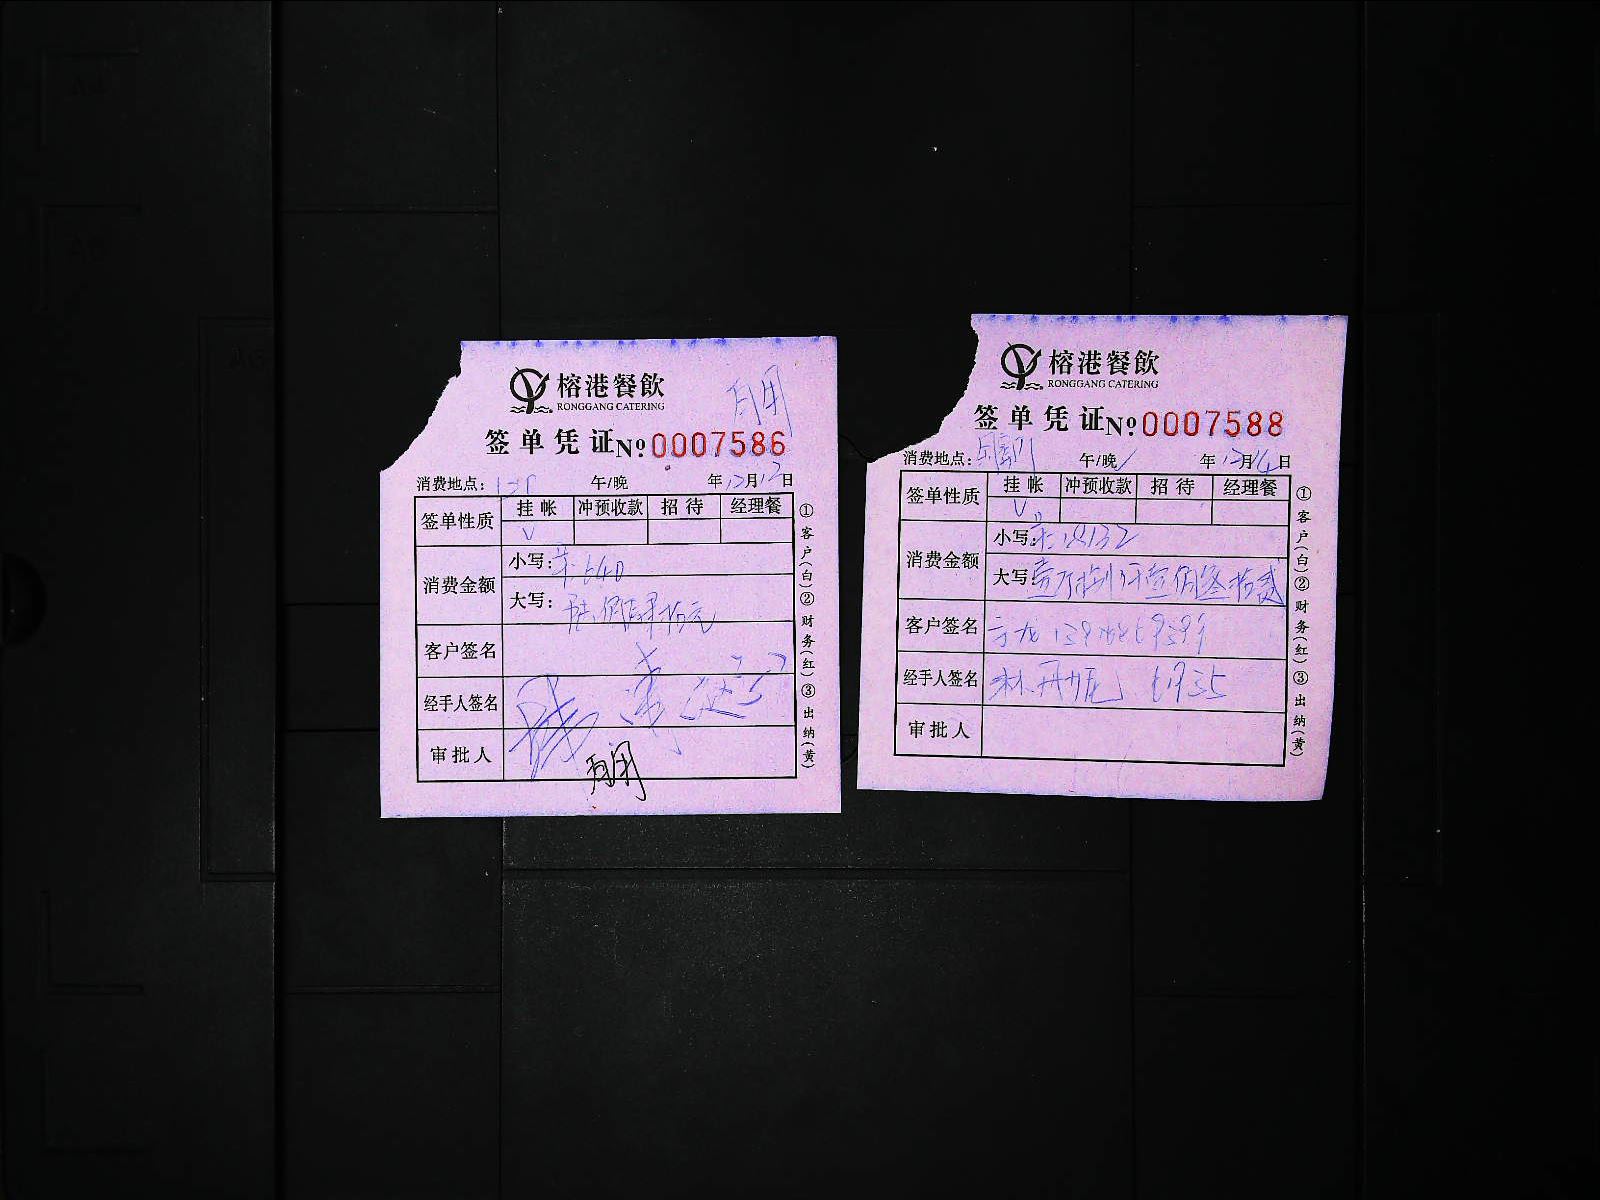 榕港餐飲
RONGGANG CATERING
签单凭证 №0007586
消费地点: 午/晚 年12月12日
签单性质 挂帐 冲预收款 招待 经理餐
V
消费金额 小写: 640
大写: 陆佰肆拾元
客户签名
经手人签名
审批人
①客户(白)②财务(红)③出纳(黄)
榕港餐飲
RONGGANG CATERING
签单凭证 №0007588
消费地点: 午/晚 年12月14日
签单性质 挂帐 冲预收款 招待 经理餐
V
消费金额 小写: 18132
大写: 壹万捌仟壹佰叁拾贰
客户签名
经手人签名 林 61935
审批人
①客户(白)②财务(红)③出纳(黄)